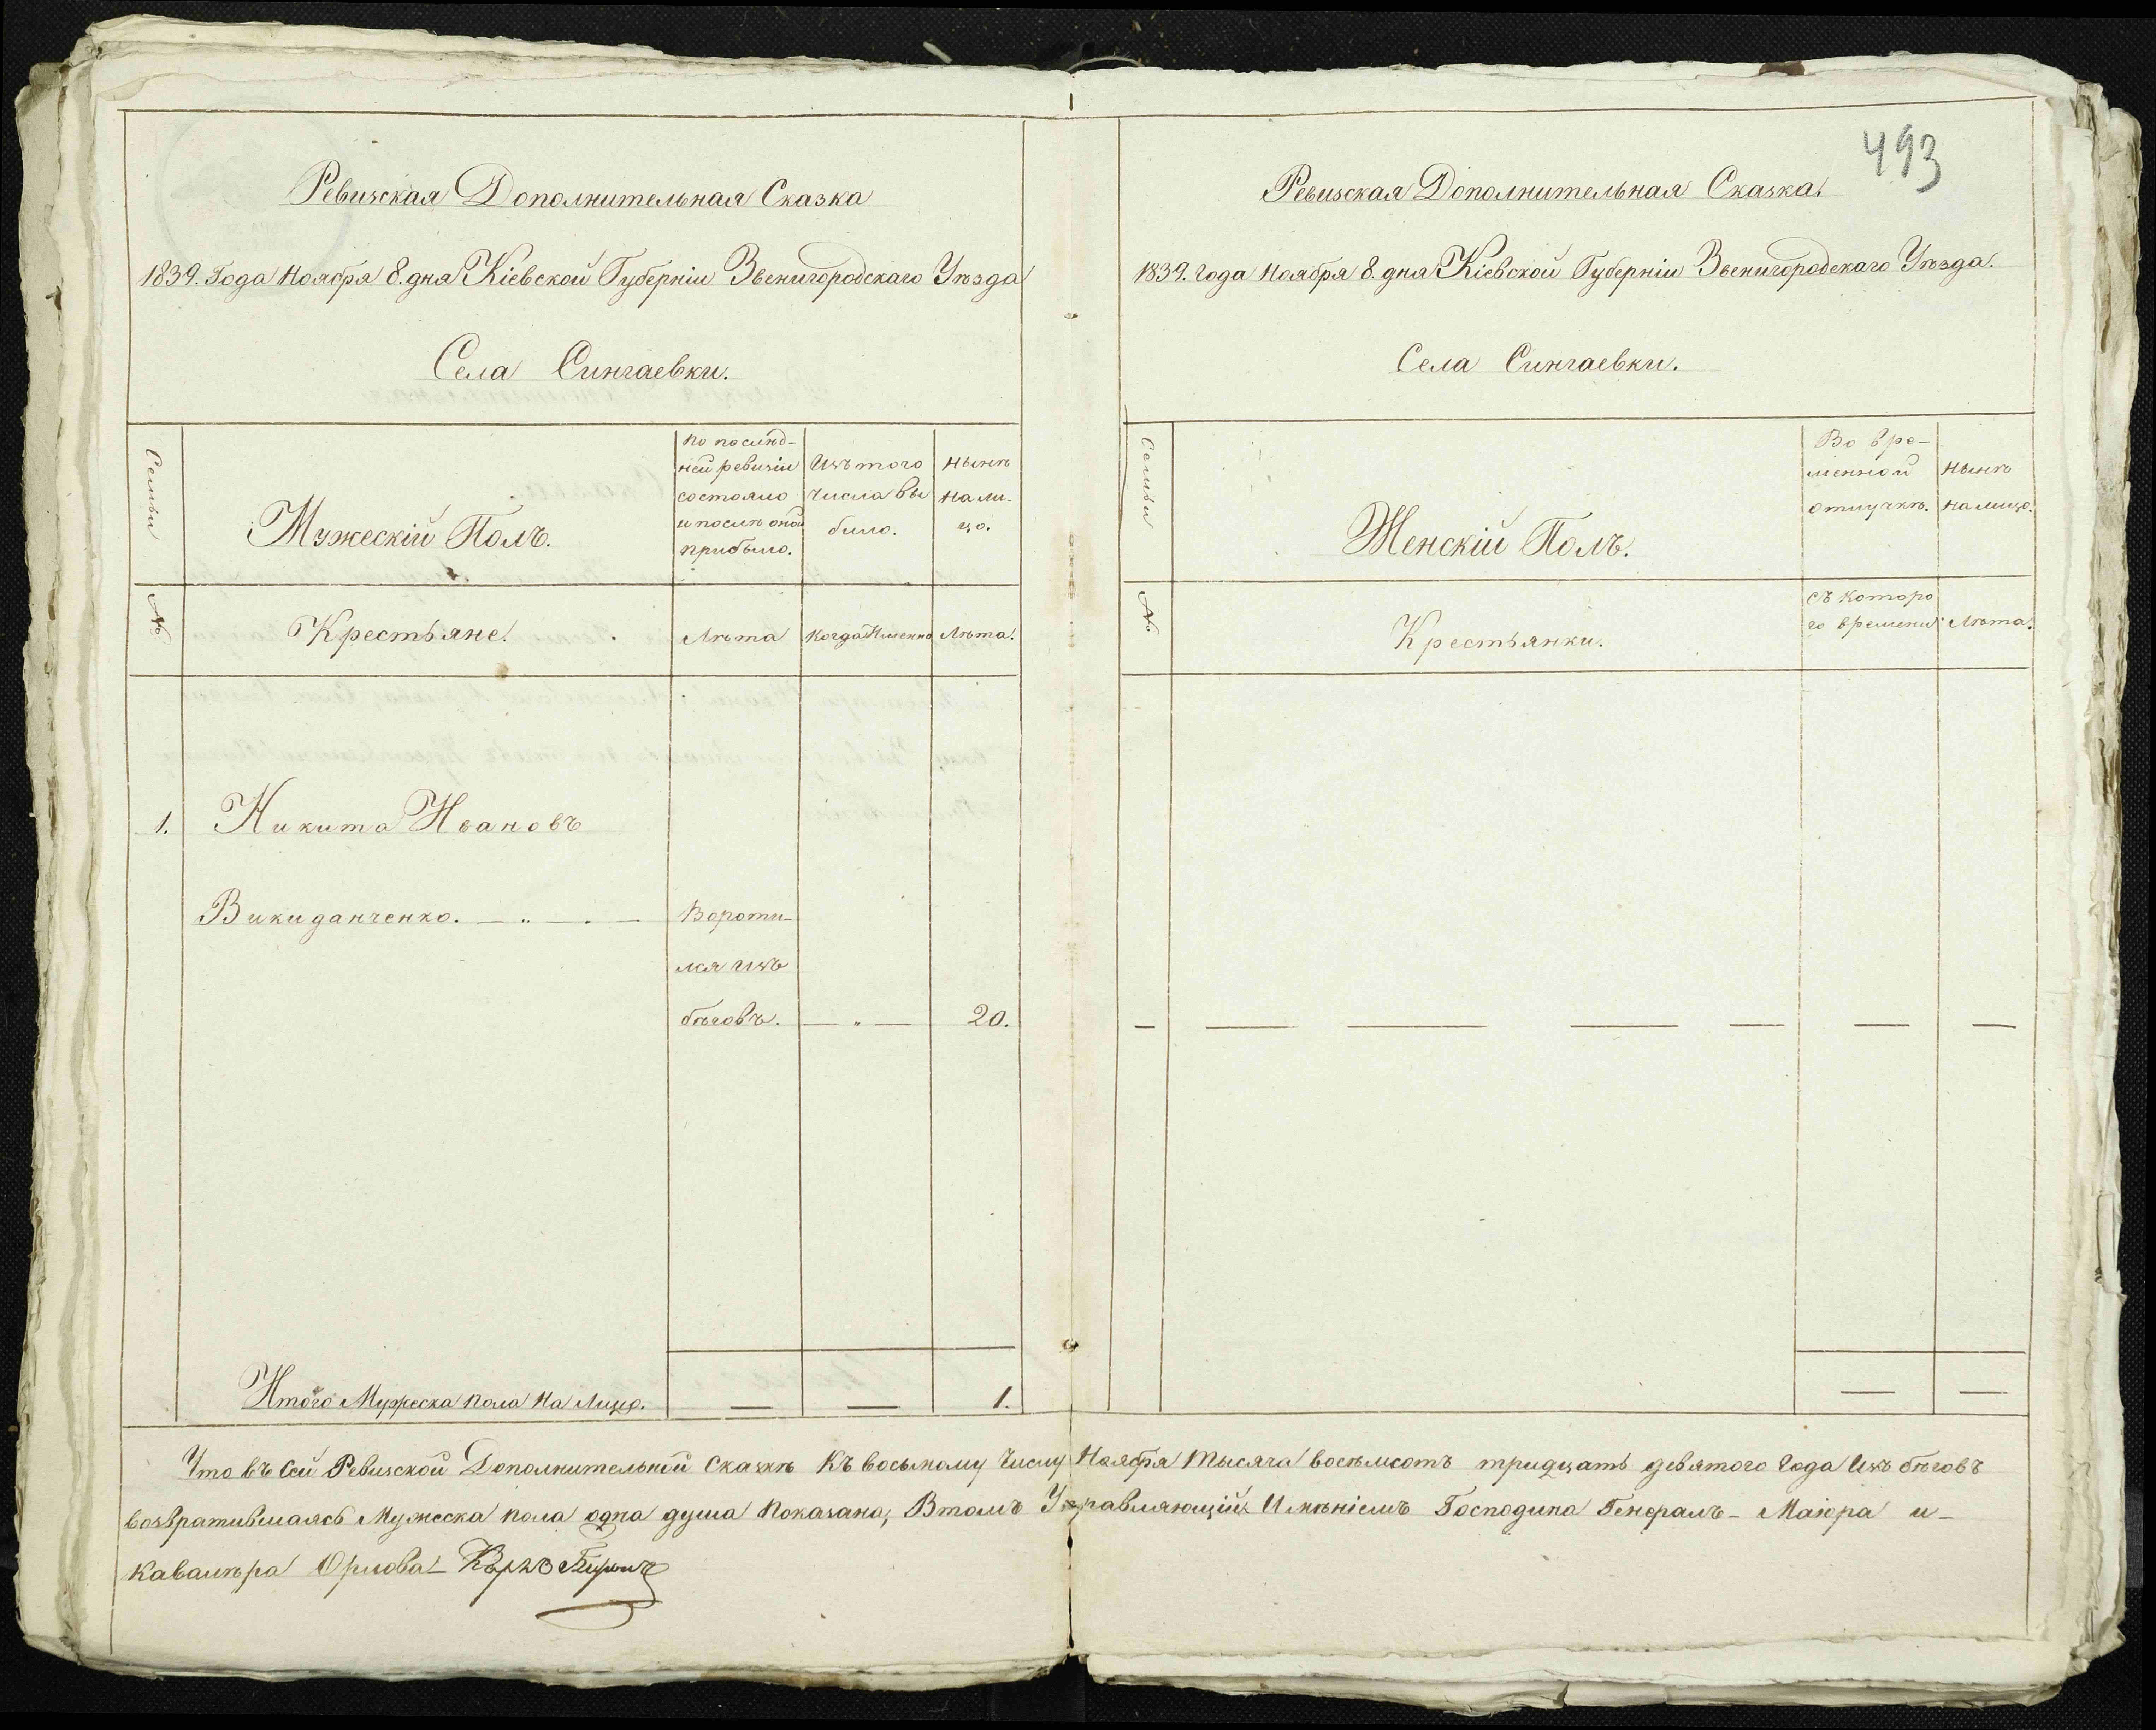 Ревизская Дополнительная Сказка
1839. Года Ноября 8. дня Кіевской Губерніи Звенигородскаго Уѣзда
Села Сингаевки.
Семьи
Мужескій Полъ.
по послѣд-
ней ревизіи
состояло
и послѣ оной
прибыло.
Изъ того
числа вы
было.
нынѣ
на ли-
цо.
№
Крестьяне.
Лѣта
Когда Именно
Лѣта.
1. Никита Ивановъ
Викиданченко. — „ — . — Вороти-
лся изъ
бѣговъ. — „ — 20.
Итого Мужеска пола На Лицо. — — 1.
493
Ревизская Дополнительная Сказка.
1839. года Ноября 8. дня Кіевской Губерніи Звенигородскаго Уѣзда.
Села Сингаевки.
Семьи
Женскій Полъ.
Во вре-
менной
отлучкѣ.
нынѣ
на лицо.
№
Крестьянки.
Съ которо
го времени
Лѣта.
— — — — — — —
— —
Что въ сей Ревизской Дополнительной Сказкѣ Къ восьмому Числу Ноября Тысяча восемсотъ тридцать девятого Года Изъ бѣговъ
возвратившаясь Мужеска пола одна душа Показана, Втомъ Управляющій Имѣніемъ Господина Генералъ- Маіора и-
Кавалѣра Орлова-